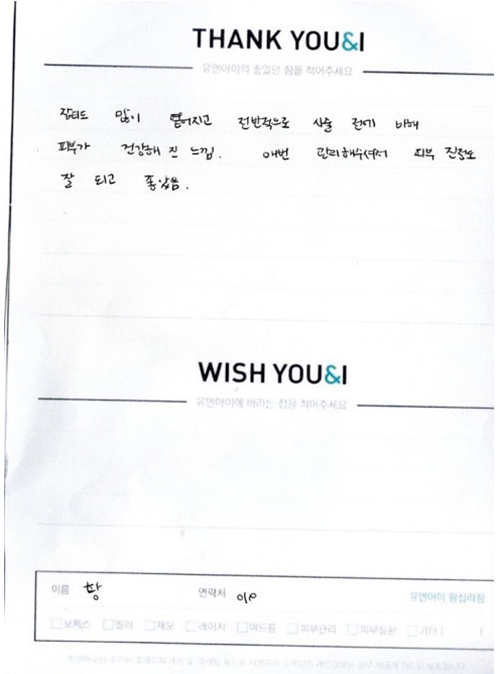 THANK YOU&I
유앤아이의 좋았던 점을 적어주세요
잡티도 많이 옅어지고 전반적으로 시술 전에 비해
피부가 건강해 진 느낌. 매번 관리해주셔서 피부 진정도
잘 되고 좋았음.
WISH YOU&I
유앤아이에 바라는 점을 적어주세요
이름 황 연락처 010 유앤아이 왕십리점
보톡스 필러 제모 레이저 여드름 피부관리 피부질환 기타 ( )